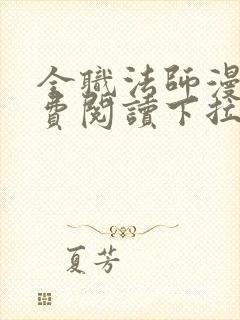 全職法師漫
費閱讀下拉
夏芳